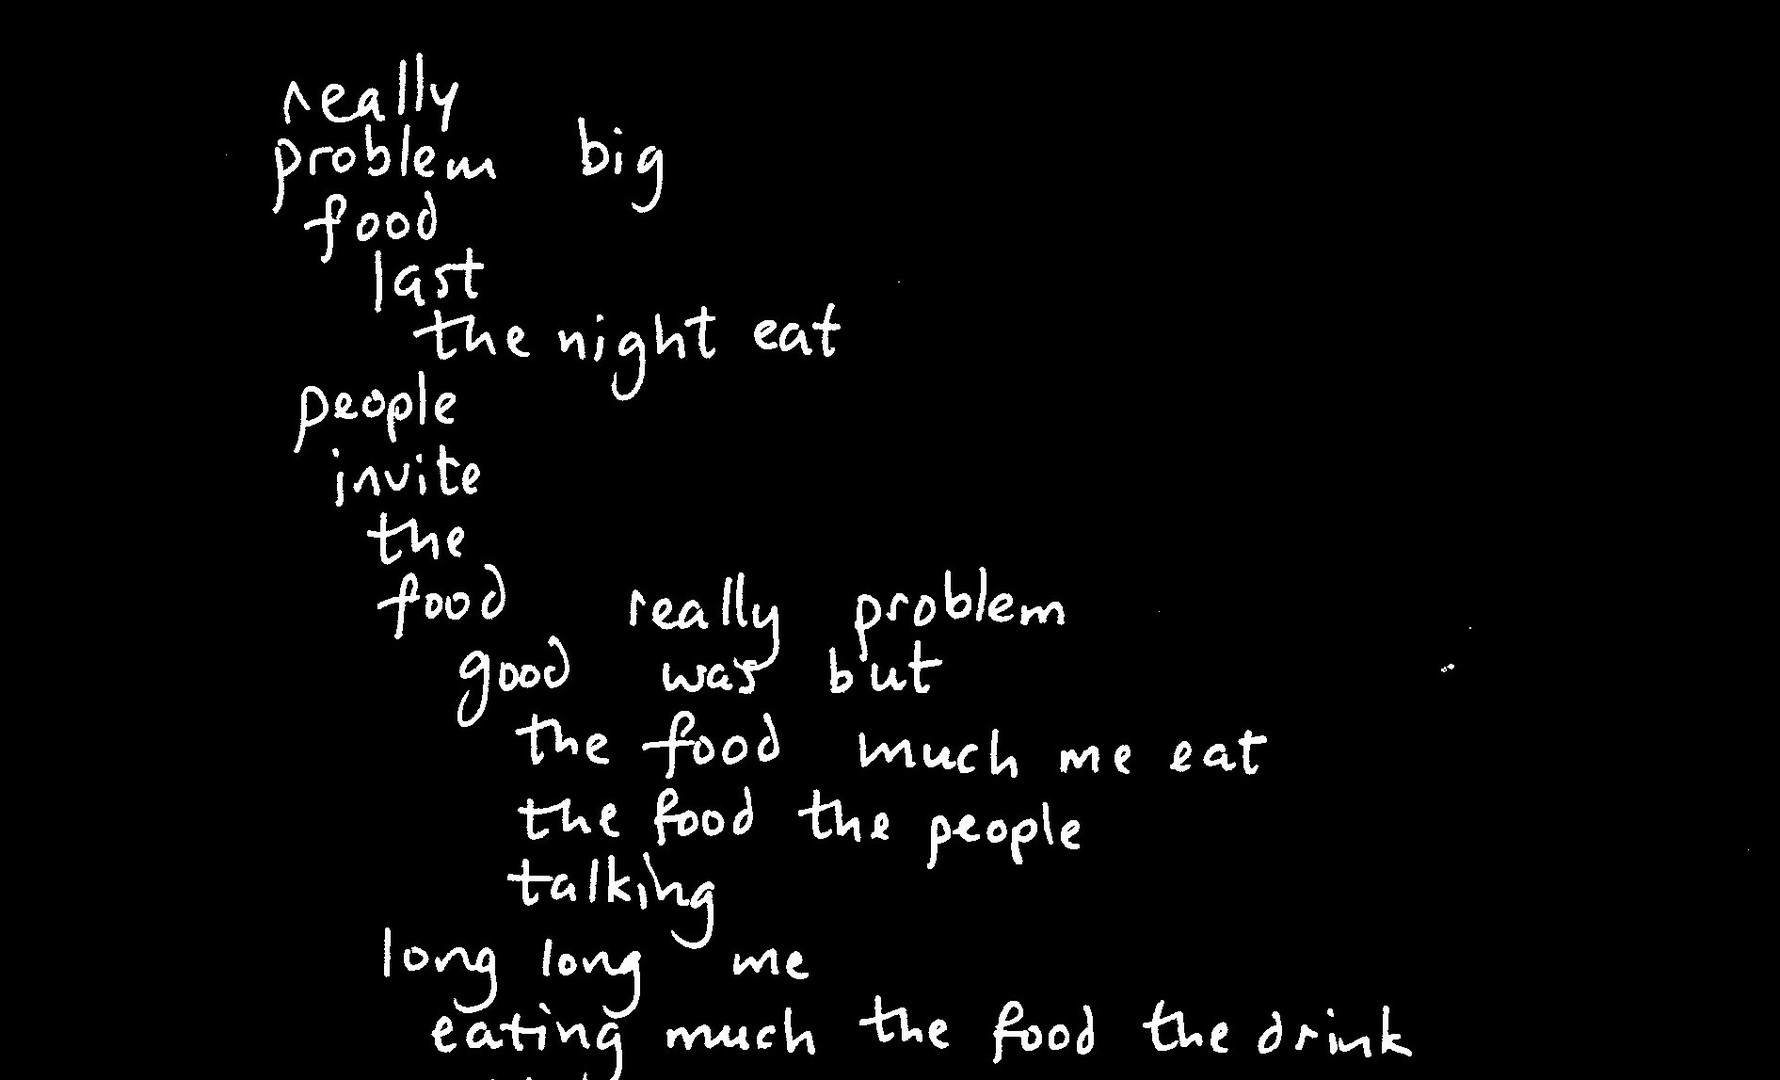 really
problem big
food
last
the night eat
people
invite
the
food really problem
good was but
the food much me eat
the food the people
talking
long long me
eating much the food the drink